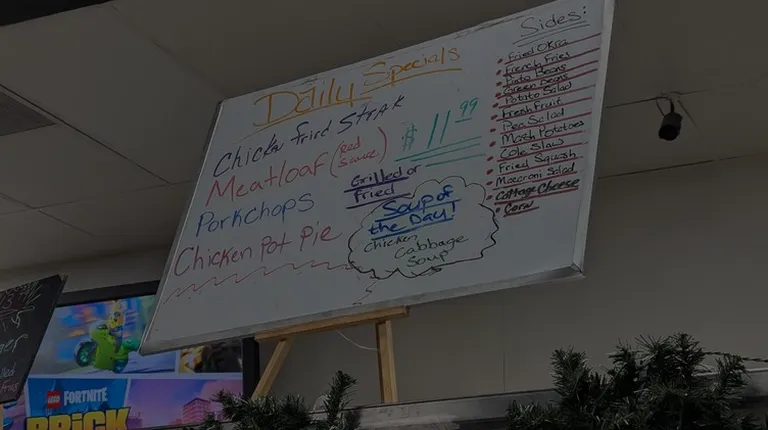 Daily Specials
Chicken fried STEAK
Meatloaf (Red Sauce)
$11.99
Porkchops
Grilled or Fried
Chicken Pot Pie
Soup of
the Day!
Chicken
Cabbage
Soup
Sides:
Fried Okra
French Fries
Pinto Beans
Green Beans
Potato Salad
Fresh Fruit
Pea Salad
Mash Potatoes
Cole Slaw
Fried Squash
Macaroni Salad
Cottage Cheese
Corn
LEGO FORTNITE
BRICK